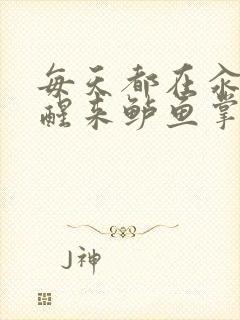 每天都在汆
醒来鲈鱼掌
J神